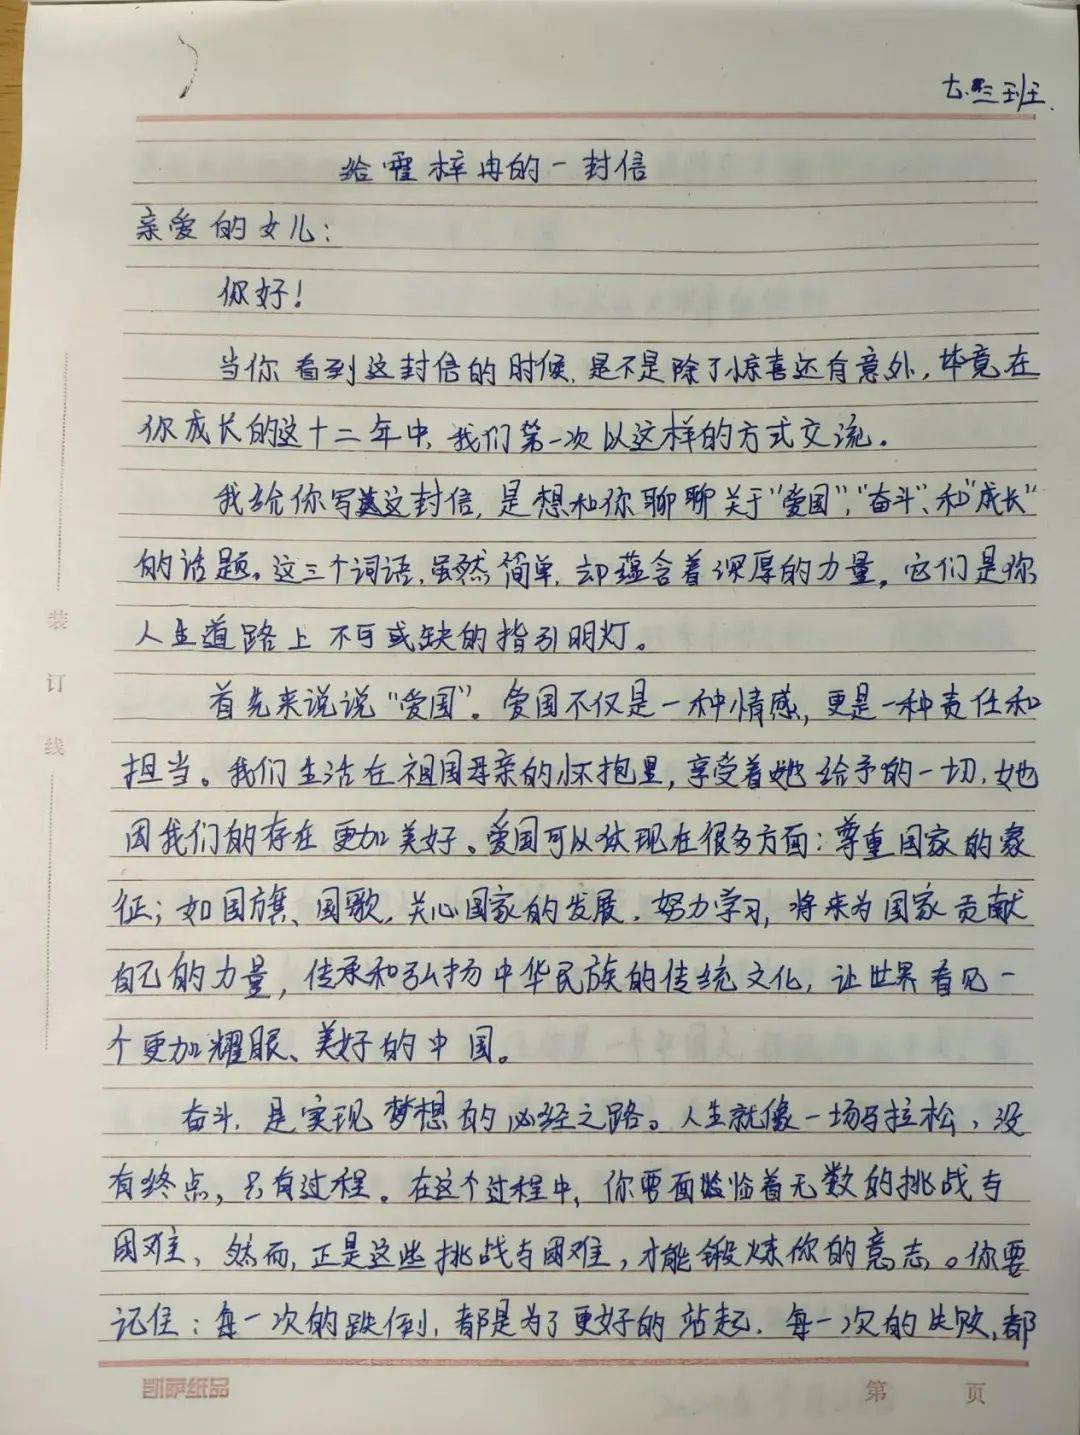 七.三班
给霍梓冉的一封信
亲爱的女儿：
你好！
当你看到这封信的时候，是不是除了惊喜还有意外，毕竟在
你成长的这十二年中，我们第一次以这样的方式交流。
我给你写这封信，是想和你聊聊关于“爱国”、“奋斗”、和“成长”
的话题。这三个词语，虽然简单，却蕴含着深厚的力量，它们是你
人生道路上不可或缺的指引明灯。
首先来说说“爱国”。爱国不仅是一种情感，更是一种责任和
担当。我们生活在祖国母亲的怀抱里，享受着她给予的一切，她
因我们的存在更加美好。爱国可以体现在很多方面：尊重国家的象
征；如国旗、国歌，关心国家的发展，努力学习，将来为国家贡献
自己的力量，传承和弘扬中华民族的传统文化，让世界看见一
个更加耀眼、美好的中国。
奋斗，是实现梦想的必经之路。人生就像一场马拉松，没
有终点，只有过程。在这个过程中，你要面临着无数的挑战与
困难，然而，正是这些挑战与困难，才能锻炼你的意志。你要
记住：每一次的跌倒，都是为了更好的站起，每一次的失败，都
装
订
线
凯萨纸品
第 页